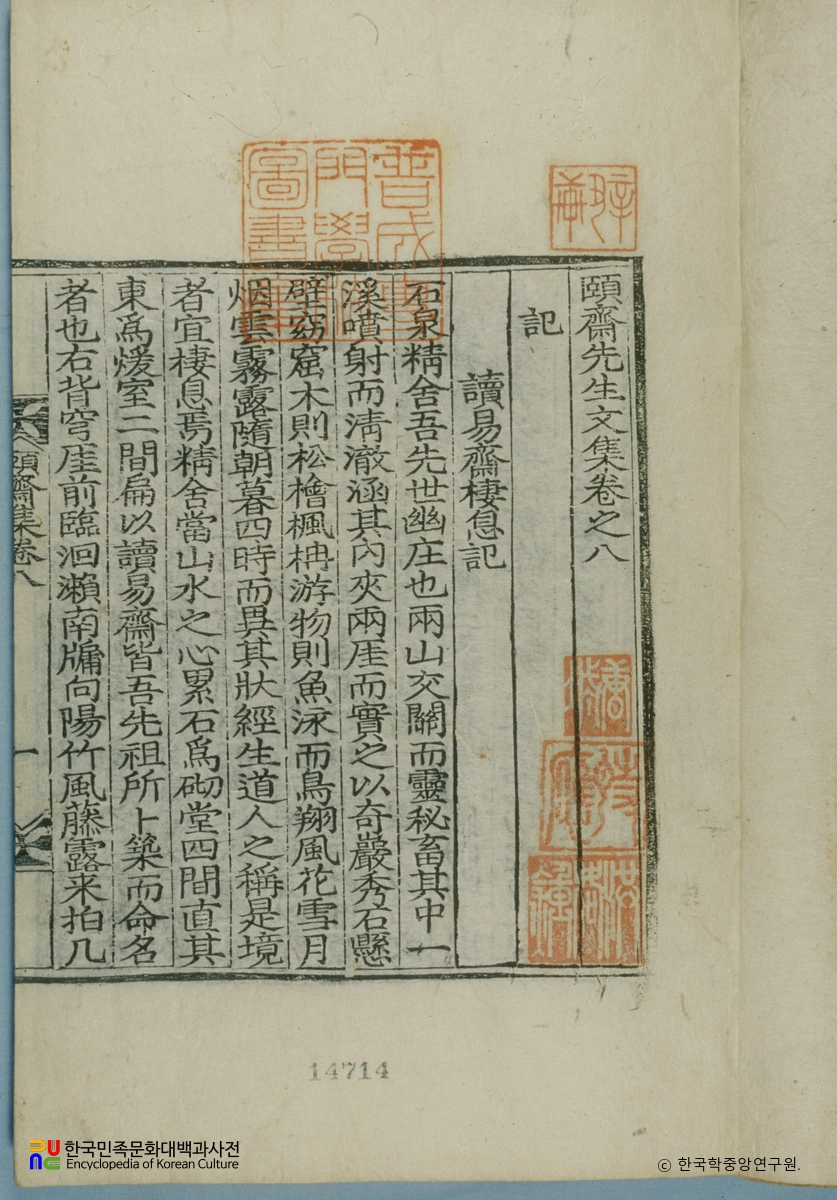 頤齋先生文集卷之八
記
讀易齋棲息記
石泉精舍吾先世幽庄也兩山交關而靈秘畜其中一
溪噴射而淸澈涵其內夾兩厓而實之以奇巖秀石懸
壁窈窟木則松檜楓枏游物則魚泳而鳥翔風花雪月
烟雲霧露隨朝暮四時而異其狀經生道人之稱是境
者宜棲息焉精舍當山水之心累石爲砌堂四間直其
東爲煖室二間扁以讀易齋皆吾先祖所卜築而命名
者也右背穹厓前臨洄瀨南牖向陽竹風藤露来拍几
頤齋集卷八
一
普成專
門學校
圖書
14714
한국민족문화대백과사전
Encyclopedia of Korean Culture
© 한국학중앙연구원.